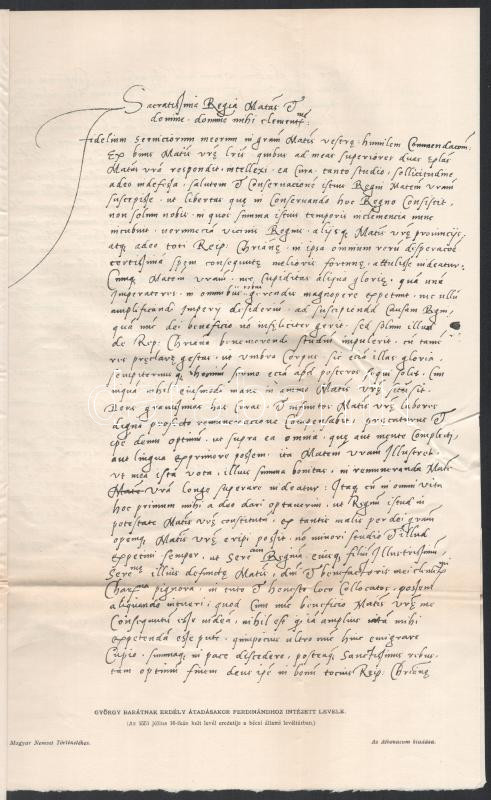 Sacratissima Regia Matas &
domine domine mihi clementme
Fidelium Servitiorum meorum in gram Matis vestrę humilem Commendacom
Ex binis Matis vrę lris quibus ad meas superiores duas eplas
Matas vra respondit intellexi ea Cura tanto studio, sollicitudine
adeo indefessa, salutem & Conservacone istius Regni Matem vram
suscepisse, ut libertas quę in Conservando hoc Regno Consistit,
non solum nobis, in quos summa istius temporis inclementia nunc
incubuit, verum etia vicinis Regnis, alijsq Matis vrę provincijs,
atq adeo toti Reip: Chrianę, in ipsa omnium rerum desperacoe
certissima spem consequendę melioris fortunę, attulisse videatur:
Cumq Matem vram, nec cupiditas aliqua glorię, qua una
Imperatores, in omnibus rebus gerendis magnopere expetunt, nec ullum
amplificandi Imperij desiderium, ad suscipienda Causam Regni,
qua nunc dei beneficio non infeliciter gerit, sed solum illud
de Rep: Chriana benemerendi studium impulerit, cu tame
res pręclarę gestas, ut umbra Corpus, sic ecia illas gloria,
sempiternus q hominum sermo ecia apd posteros sequi solet, Cum
inqua nihil eiusmodi mane in animo Matis vrę sciā sit,
Deus gratissimus has Curas, & infinitos Matis vrę labores
digna profecto remuneracione Compensabit, precaturus &
ipe deum optimum, ut supra ea omnia, quę aut mente complecti,
aut lingua exprimere possem, ita Matem vram Illustret,
ut mea ista vota, illius summa bonitas, in remuneranda Mate
vra longe superare videatur: Itaq cu in omni vita
hoc primum mihi a deo dari optaverim, ut Regnum istud in
potestate Matis vrę constituta, ex tantis malis per dei gram
opemq Matis vrę eripi possit, no minori studio & illud
expetivi semper, ut Serma Regina eiusq filius Illustrissimus,
Serme illius defunctę Matis, dni & benefactoris mei clemmi
Charma pignora, in tuto & honesto loco Collocatos, possem
aliquando intueri, quod Cum nunc beneficio Matis vrę me
Consequutu esse videa, nihil est q ia amplius mihi
expetenda esse pute, quinpocius ultro nunc huic emigrare
Cupio, summaq in pace discedere, posteaq Sanctissimis rebus
tam optimu finem deus ipe in bonu tocius Reip: Chrianę
GYÖRGY BARÁTNAK ERDÉLY ÁTADÁSAKOR FERDINÁNDHOZ INTÉZETT LEVELE.
(Az 1551 július 16-ikán kelt levél eredetije a bécsi állami levéltárban.)
Magyar Nemzet Történetéhez.
Az Athenaeum kiadása.